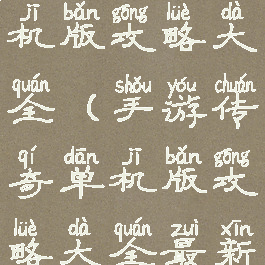 jī bǎn gōng lüè dà
机版攻略大
quán shǒu yóu chuán
全(手游传
qí dān jī bǎn gōng
奇单机版攻
lüè dà quán zuì xīn
略大全最新